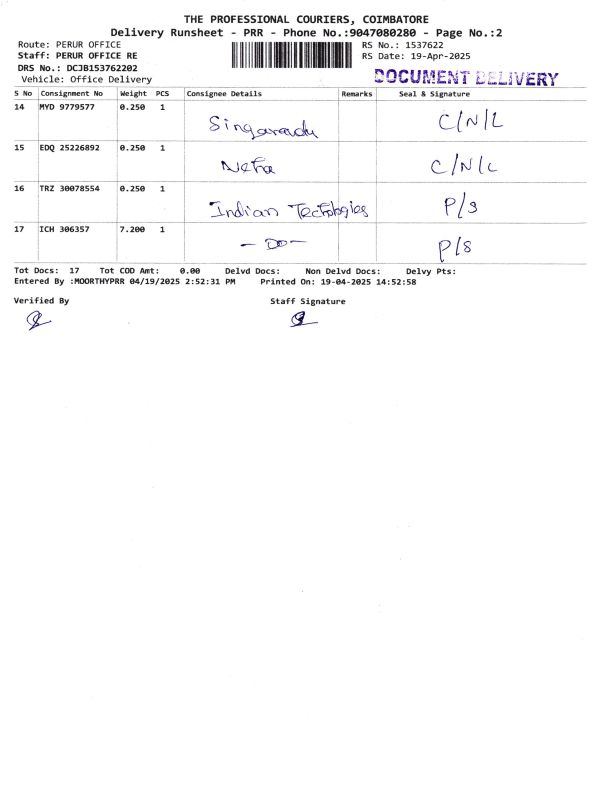 THE PROFESSIONAL COURIERS, COIMBATORE
Delivery Runsheet - PRR - Phone No.:9047080280 - Page No.:2
Route: PERUR OFFICE RS No.: 1537622
Staff: PERUR OFFICE RE RS Date: 19-Apr-2025
DRS No.: DCJB153762202
Vehicle: Office Delivery DOCUMENT DELIVERY
S No Consignment No Weight PCS Consignee Details Remarks Seal & Signature
14 MYD 9779577 0.250 1 C/N/L
15 EDQ 25226892 0.250 1 Neha C/N/L
16 TRZ 30078554 0.250 1 Indian P/S
17 ICH 306357 7.200 1 - DO - P/S
Tot Docs: 17 Tot COD Amt: 0.00 Delvd Docs: Non Delvd Docs: Delvy Pts:
Entered By :MOORTHYPRR 04/19/2025 2:52:31 PM Printed On: 19-04-2025 14:52:58
Verified By Staff Signature